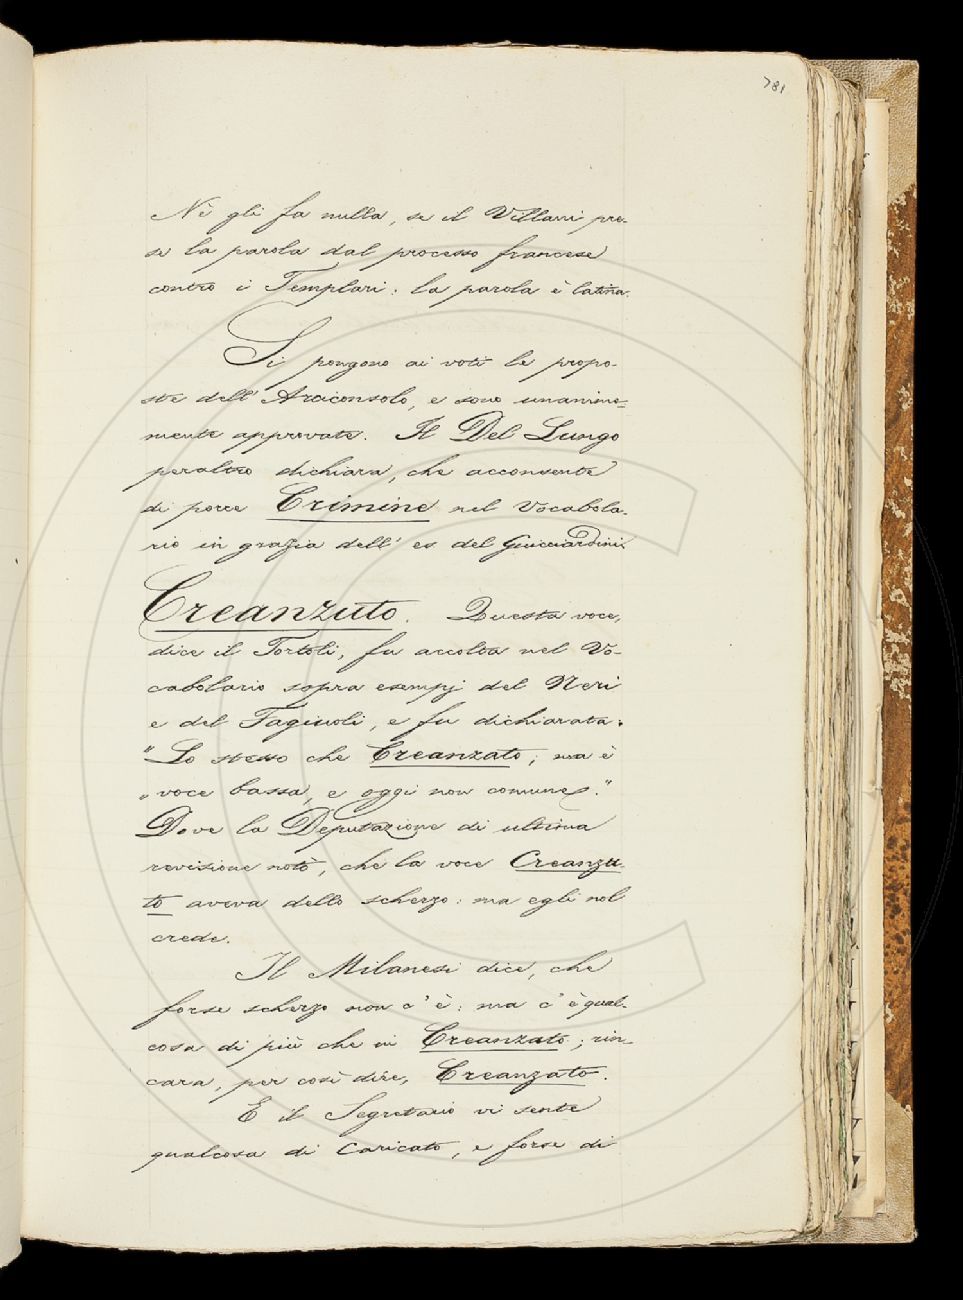 781
Nè gli fa nulla, se il Villani pre-
se la parola dal processo francese
contro i Templari: la parola è latina.
Si pongono ai voti le propo-
ste dell'Arciconsolo, e sono unanime-
mente approvate. Il Del Lungo
peraltro dichiara, che acconsente
di porre Crimine nel Vocabola-
rio in grazia dell'es. del Guicciardini.
Creanzuto. Questa voce,
dice il Tortoli, fu accolta nel Vo-
cabolario sopra esempj del Neri
e del Fagiuoli, e fu dichiarata:
"Lo stesso che Creanzato; ma è
"voce bassa, e oggi non comune."
Dove la Deputazione di ultima
revisione notò, che la voce Creanzu-
to aveva dello scherzo: ma egli nol
crede.
Il Milanesi dice, che
forse scherzo non c'è: ma c'è qual-
cosa di più che in Creanzato; rin-
cara, per così dire, Creanzato.
E il Segretario vi sente
qualcosa di caricato, e forse di